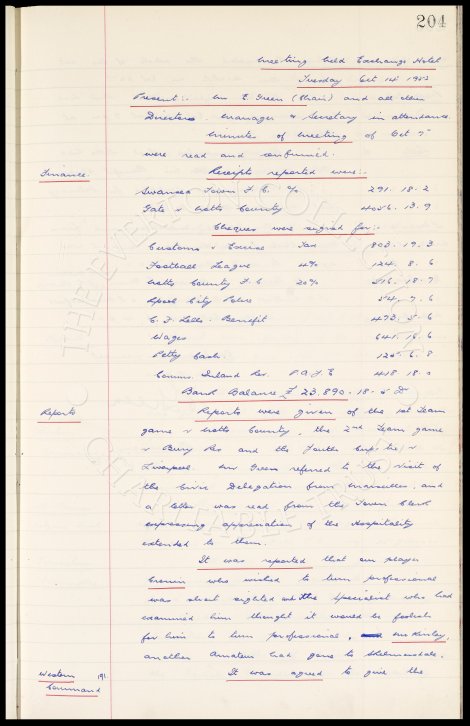 204
Meeting held Exchange Hotel
Tuesday Oct 14th 1952
Present:- Mr E. Green (Chair) and all other
Directors. Manager & Secretary in attendance.
Minutes of Meeting of Oct 7th
were read and confirmed.
Finance. Receipts reported were:-
Swansea Town F.C. % 291. 18. 2
Gate v Notts County 4056. 13. 9
Cheques were signed for:-
Customs & Excise Tax 803. 19. 3
Football League 4% 124. 8. 6
Notts County F.C. 20% 516. 18. 7
Lpool City Police 54. 7. 6
C.J. Lello. Benefit 473. 5. 6
Wages 641. 16. 6
Petty Cash. 125. 6. 8
Comms. Inland Rev. P.A.Y.E 418. 18. 0
Bank Balance £ 23,890. 18. 5 Dr
Reports Reports were given of the 1st Team
game v Notts County, the 2nd Team game
v Bury Res and the Youth Cup tie v
Liverpool. Mr Green referred to the visit of
the Civic Delegation from Marseilles, and
a letter was read from the Town Clerk
expressing appreciation of the Hospitality
extended to them.
It was reported that our player
who wished to turn professional
was short sighted and the Specialist who had
examined him thought it would be foolish
for him to turn professional, McKinley,
another Amateur had gone to Skelmersdale.
Western It was agreed to give the
Command
THE EVERTON COLLECTION
CHARITABLE TRUST